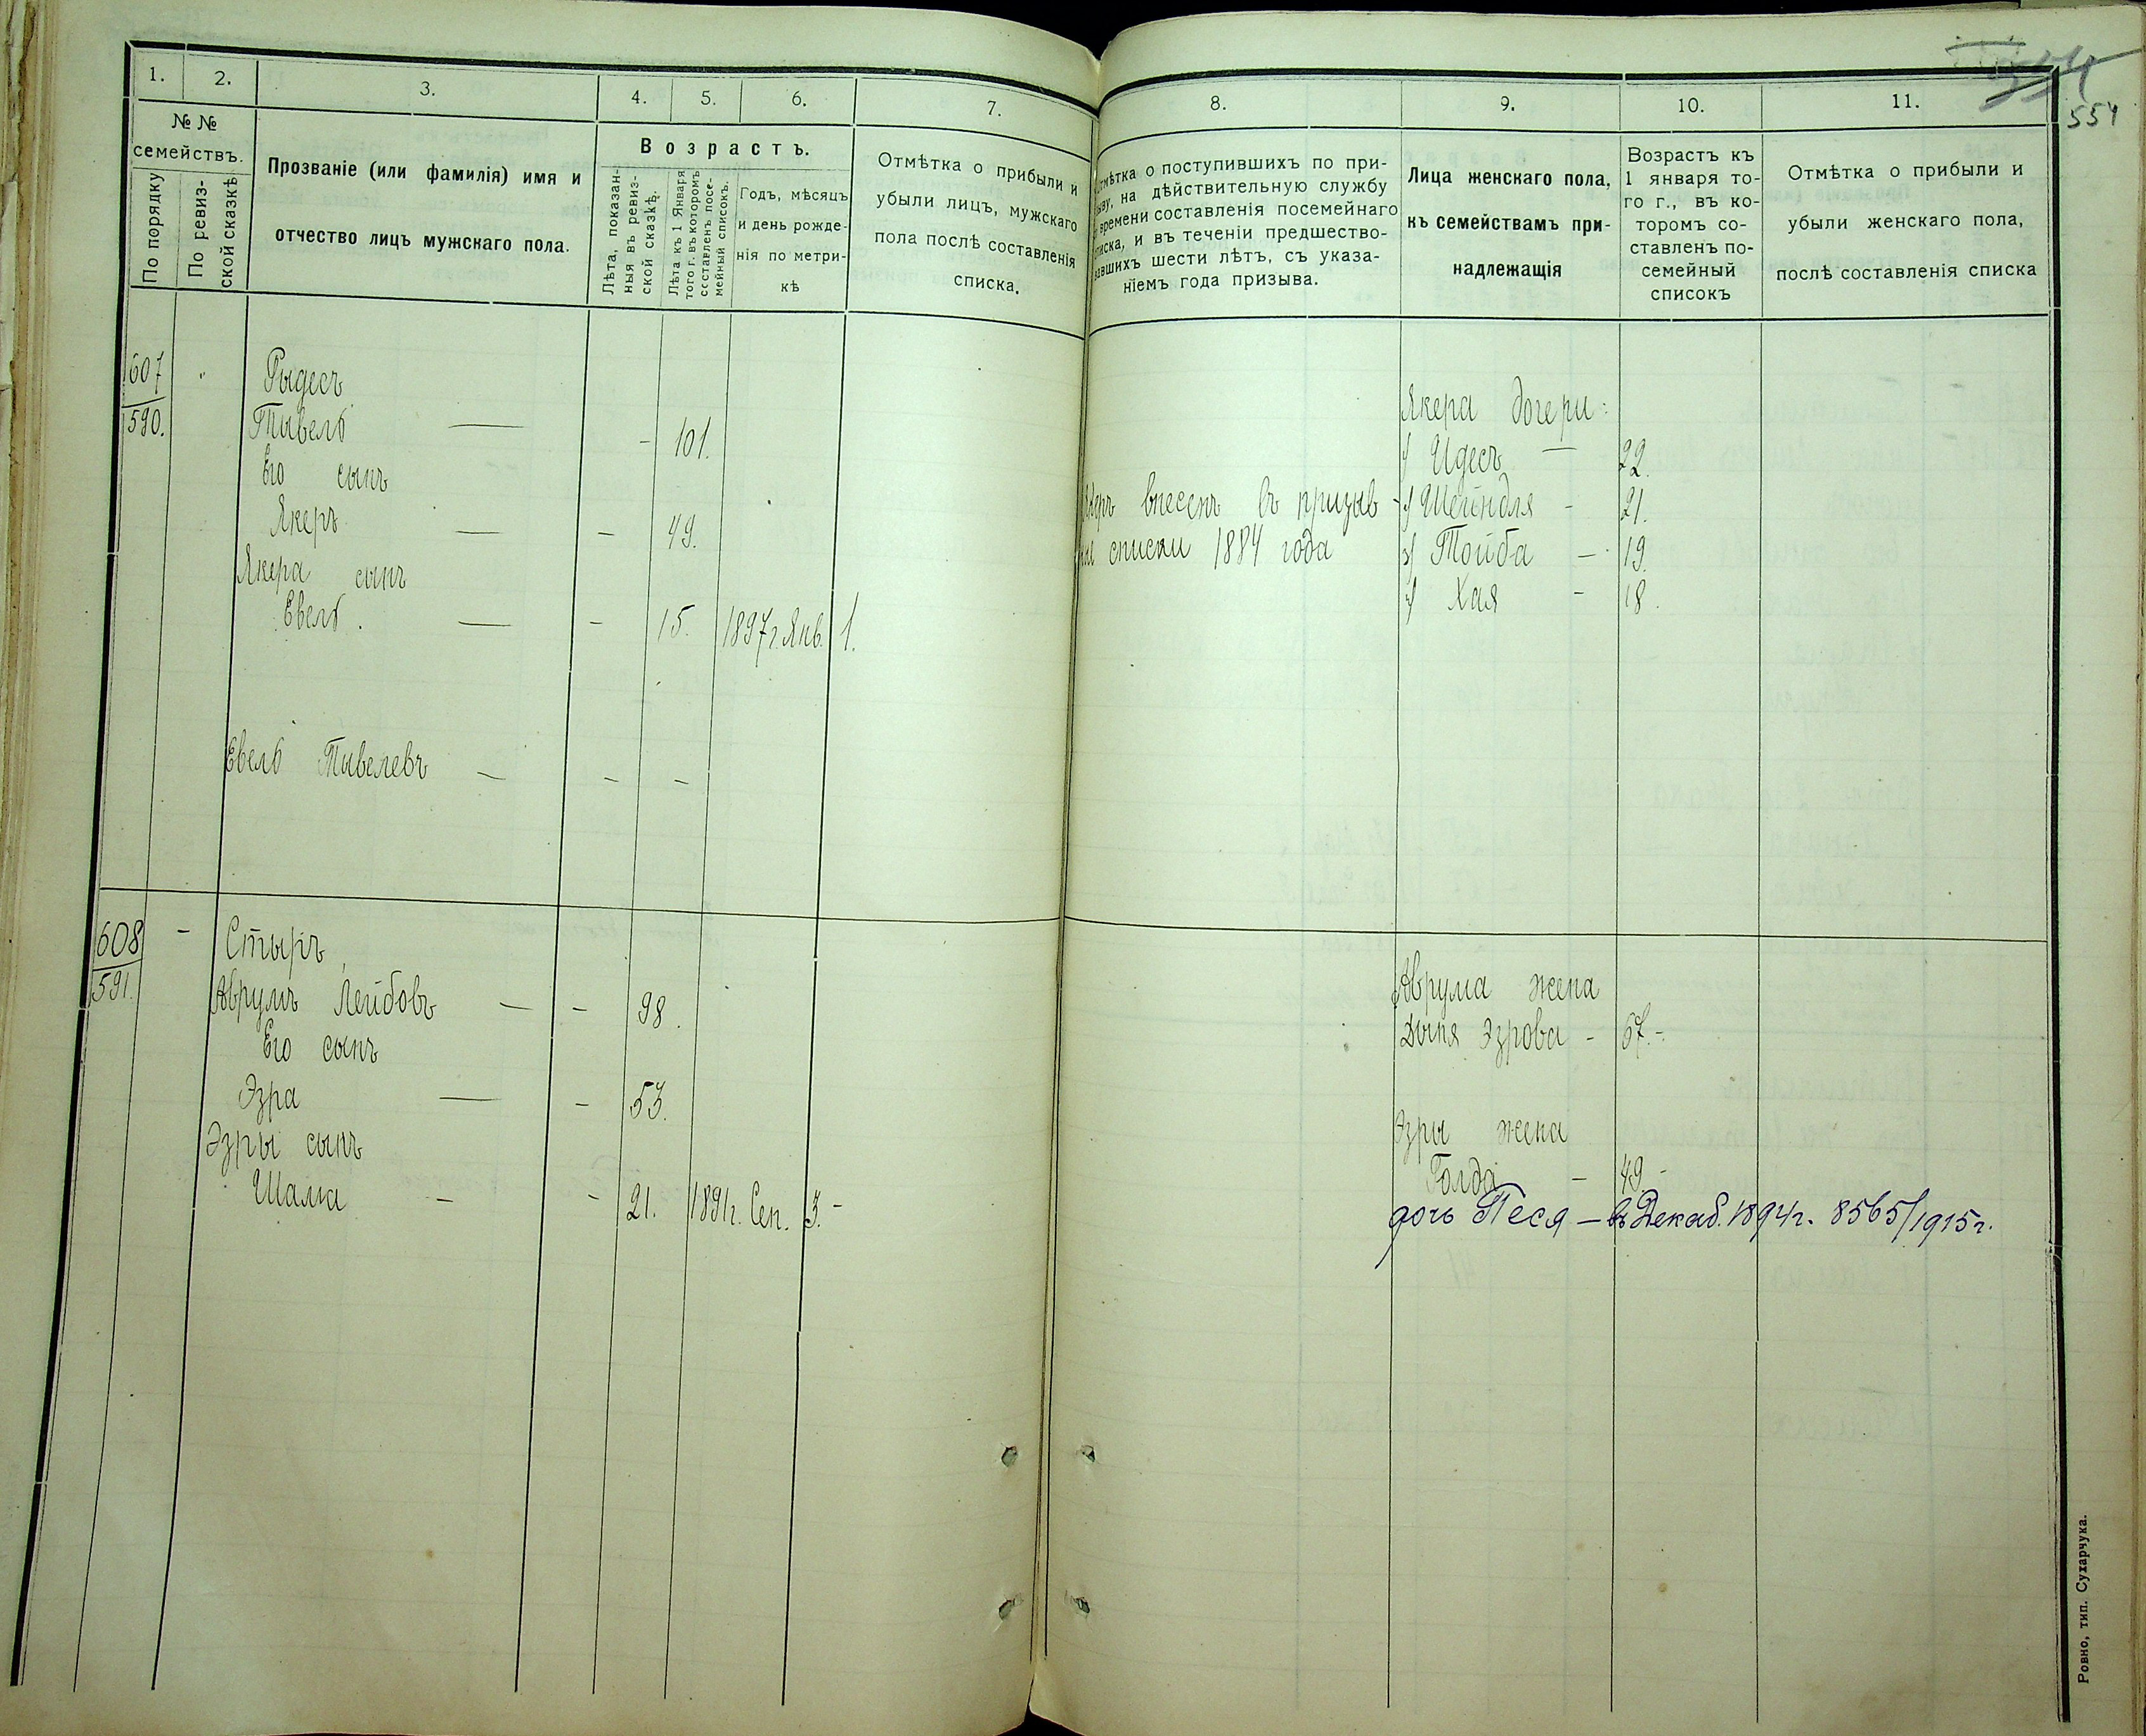 554
1. 2. 3. 4. 5. 6. 7.
№ № семействъ.
По порядку
По ревизской сказкѣ
Прозваніе (или фамилія) имя и
отчество лицъ мужскаго пола.
Возрастъ.
Лѣта, показан-
ныя въ ревиз-
ской сказкѣ.
Лѣта къ 1 Января
того г. въ которомъ
составленъ посе-
мейный списокъ.
Годъ, мѣсяцъ
и день рожде-
нія по метри-
кѣ
Отмѣтка о прибыли и
убыли лицъ, мужскаго
пола послѣ составленія
списка.
607 " Рыдесъ
590. Тывель — - 101.
Его сынъ
Якеръ — - 49.
Якера сынъ
Евель. — - 15. 1897 г. Янв. 1.
Евель Тывелевъ - - -
608 - Стыръ
591. Аврумъ Лейбовъ — - 98.
Его сынъ
Эзра — - 53.
Эзры сынъ
Шама - - 21. 1891 г. Сен. 3. -
8. 9. 10. 11.
Отмѣтка о поступившихъ по при-
зыву, на дѣйствительную службу
времени составленія посемейнаго
списка, и въ теченіи предшество-
вавшихъ шести лѣтъ, съ указа-
ніемъ года призыва.
Лица женскаго пола,
къ семействамъ при-
надлежащія
Возрастъ къ
1 января то-
го г., въ ко-
торомъ со-
ставленъ по-
семейный
списокъ
Отмѣтка о прибыли и
убыли женскаго пола,
послѣ составленія списка
Якера дочери:
1/ Идесъ — 22.
Якеръ внесенъ въ призыв- 2/ Шейндля - 21.
ные списки 1884 года 3/ Тойба - 19.
4/ Хая - 18.
Аврума жена
Дыня Эзрова - 67.-
Эзры жена
Голда - 49.-
дочь Песя — въ Декаб. 1894 г. 8565/1915 г.
Ровно, тип. Сухарчука.